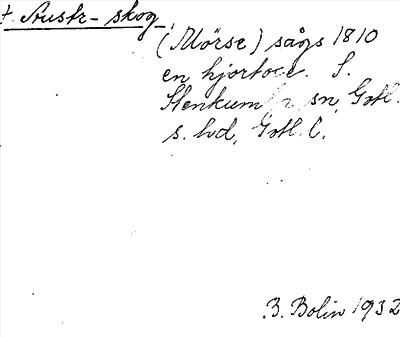 t. Austr-skog,
(Mörse) sågs 1810
en hjortoxe. S.
Stenkum sn, Gotl.
s. hd, Gotl. C.
B. Bolin 1932